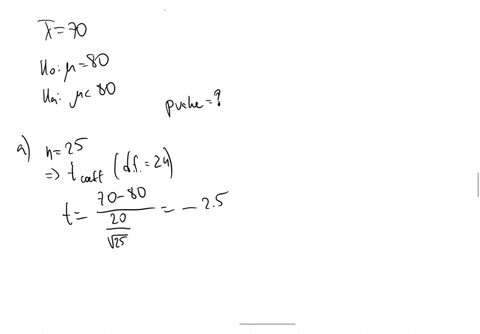 x̄=70
H₀: μ=80
Hₐ: μ<80
pvalue=?
a) n=25
⇒ t coeff (df.=24)
t= (70-80)/(20/√25) = -2.5